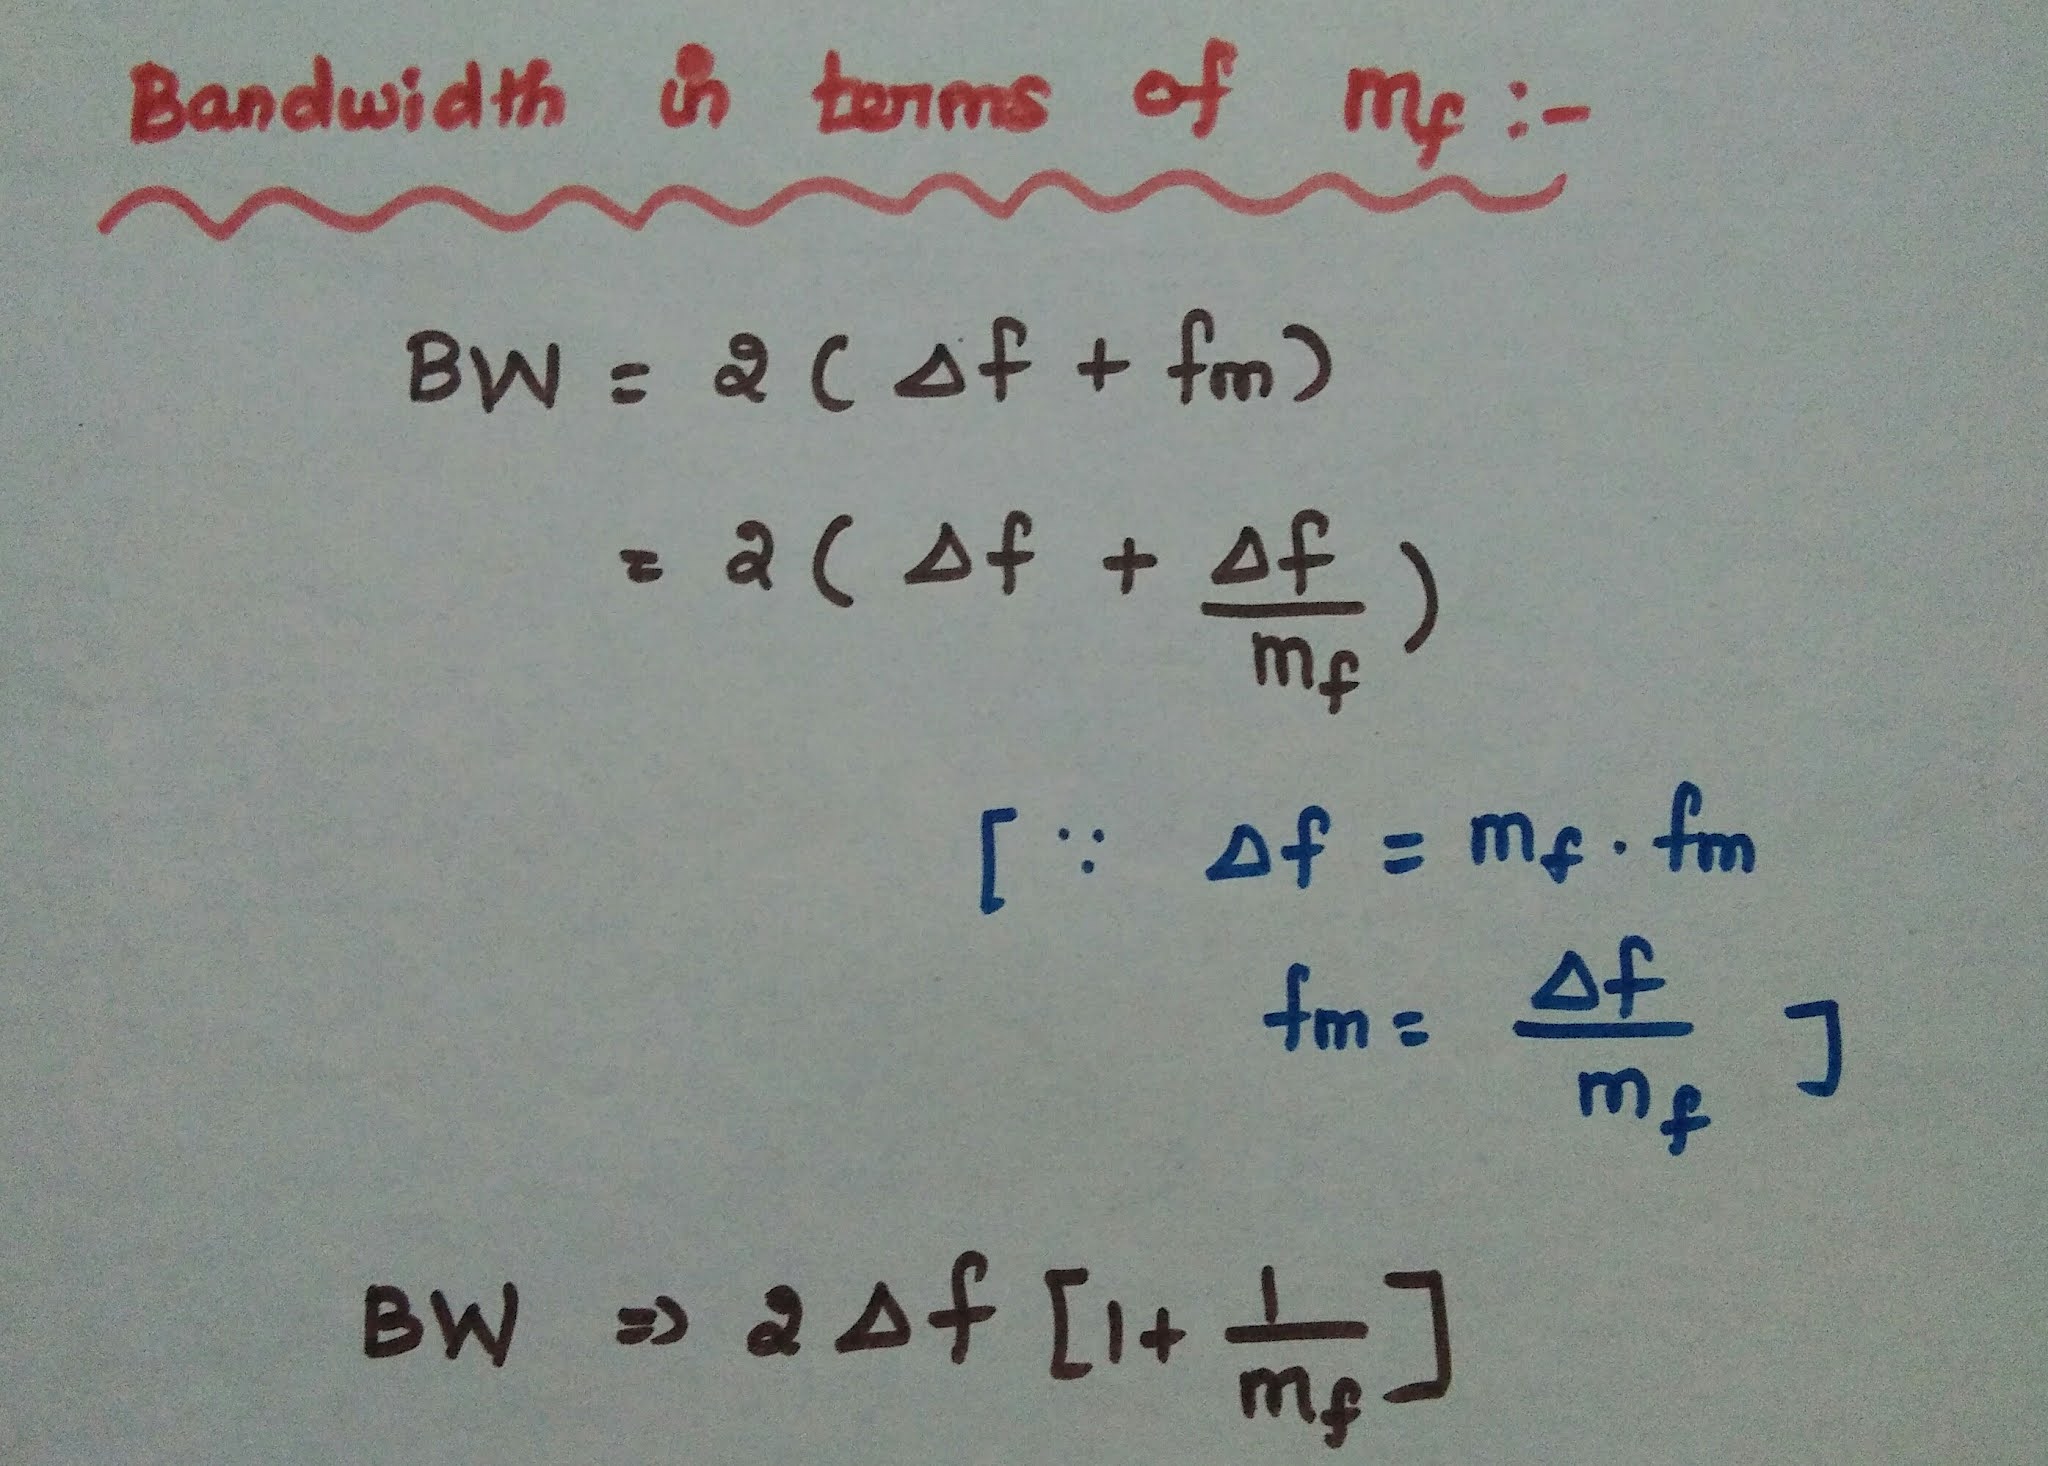 Bandwidth in terms of mf :-
BW = 2 ( Δf + fm )
= 2 ( Δf + Δf/mf )
[ ∵ Δf = mf . fm
fm = Δf/mf ]
BW ⇒ 2 Δf [ 1 + 1/mf ]